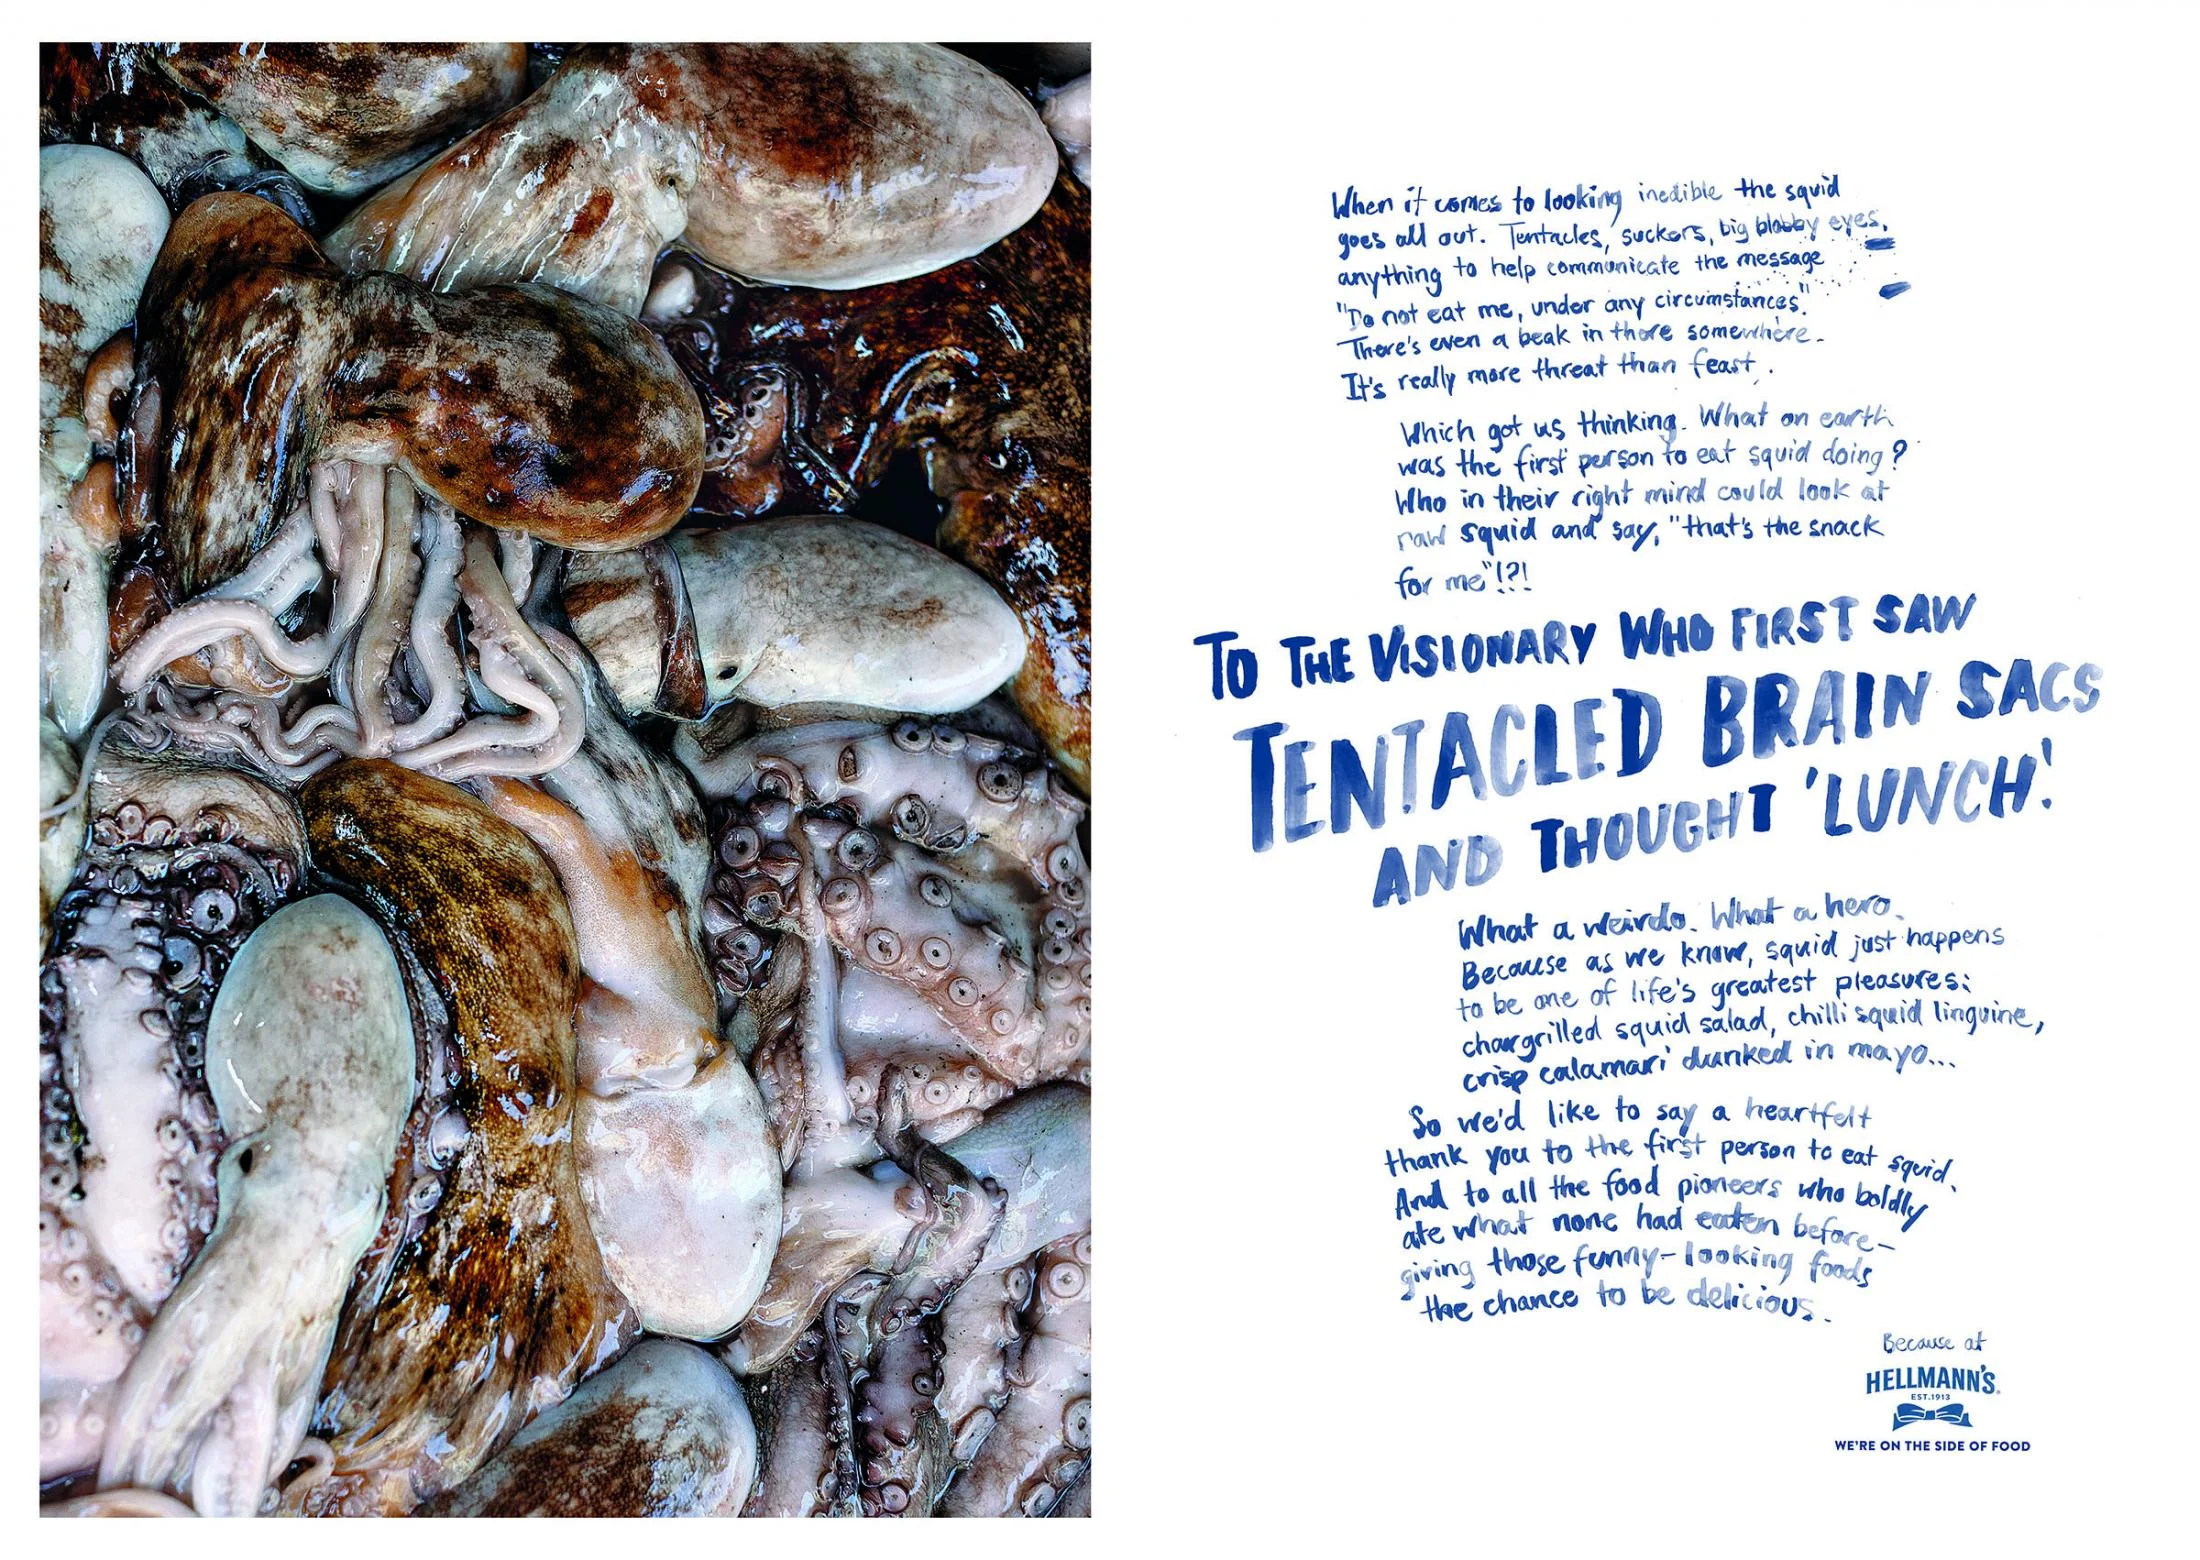 When it comes to looking inedible the squid
goes all out. Tentacles, suckers, big blobby eyes,
anything to help communicate the message
"Do not eat me, under any circumstances."
There's even a beak in there somewhere.
It's really more threat than feast.
Which got us thinking. What on earth
was the first person to eat squid doing?
Who in their right mind could look at
raw squid and say, "that's the snack
for me"!?!
TO THE VISIONARY WHO FIRST SAW
TENTACLED BRAIN SACS
AND THOUGHT 'LUNCH'.
What a weirdo. What a hero.
Because as we know, squid just happens
to be one of life's greatest pleasures:
chargrilled squid salad, chilli squid linguine,
crisp calamari dunked in mayo...
So we'd like to say a heartfelt
thank you to the first person to eat squid.
And to all the food pioneers who boldly
ate what none had eaten before-
giving those funny-looking foods
the chance to be delicious.
Because at
HELLMANN'S®
EST.1913
WE'RE ON THE SIDE OF FOOD